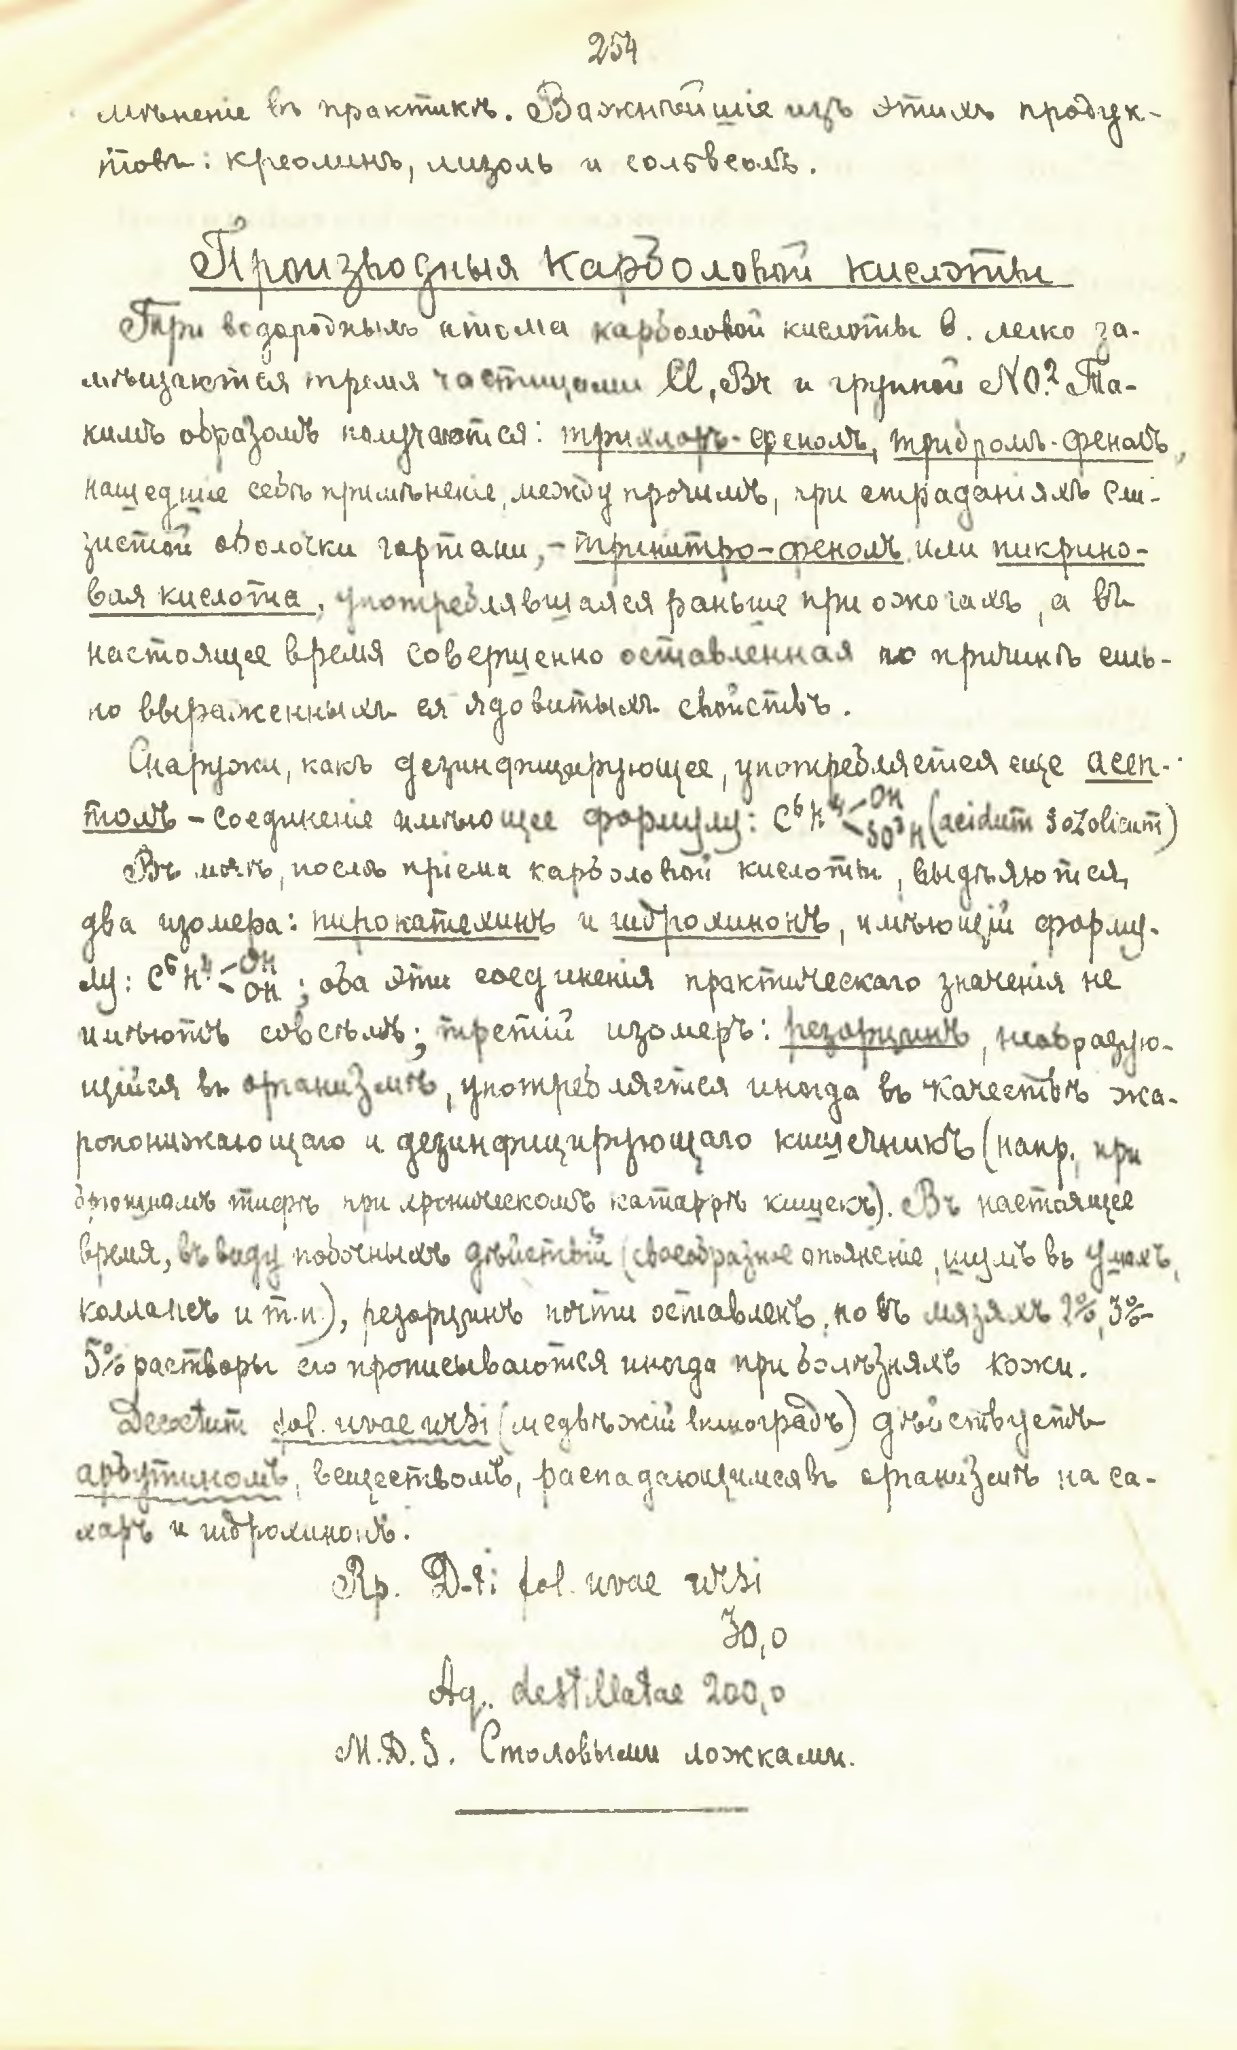 254
мѣненіе въ практикѣ. Важнѣйшіе изъ этихъ продук-
товъ: креолинъ, лизолъ и сольвеолъ.
Производныя карболовой кислоты
Три водородныхъ атома карболовой кислоты б. легко за-
мѣщаются тремя частицами Cl, Br и группой NO². Та-
кимъ образомъ получаются: трихлоръ-фенолъ, трибромъ-фенолъ,
нашедшіе себѣ примѣненіе, между прочимъ, при страданіяхъ сли-
зистой оболочки гортани, – тринитро-фенолъ или пикрино-
вая кислота, употреблявшаяся раньше при ожогахъ, а въ
настоящее время совершенно оставленная по причинѣ силь-
но выраженныхъ ея ядовитыхъ свойствъ.
Снаружи, какъ дезинфицирующее, употребляется еще асеп-
толъ – соединеніе имѣющее формулу: C⁶H⁴<OH SO³H (acidum sozolicum)
Въ мочѣ, послѣ пріема карболовой кислоты, выдѣляются
два изомера: пирокатехинъ и гидрохинонъ, имѣющій форму-
лу: C⁶H⁴<OH OH; оба эти соединенія практическаго значенія не
имѣютъ совсѣмъ; третій изомеръ: резорцинъ, необразую-
щійся въ организмѣ, употребляется иногда въ качествѣ жа-
ропонижающаго и дезинфицирующаго кишечникъ (напр., при
брюшномъ тифѣ при хроническомъ катаррѣ кишекъ). Въ настоящее
время, въ виду побочныхъ дѣйствій (своеобразное опьяненіе, шумъ въ ушахъ,
коллапсъ и т.п.), резорцинъ почти оставленъ, но въ мазяхъ 2%, 3%-
5% растворы его прописываются иногда при болѣзняхъ кожи.
Decoctum fol. uvae ursi (медвѣжій виноградъ) дѣйствуетъ
арбутиномъ, веществомъ, распадающимся въ организмѣ на са-
харъ и гидрохинонъ.
Rp. D-ti fol. uvae ursi
30,0
Aq. destillatae 200,0
M.D.S. Столовыми ложками.